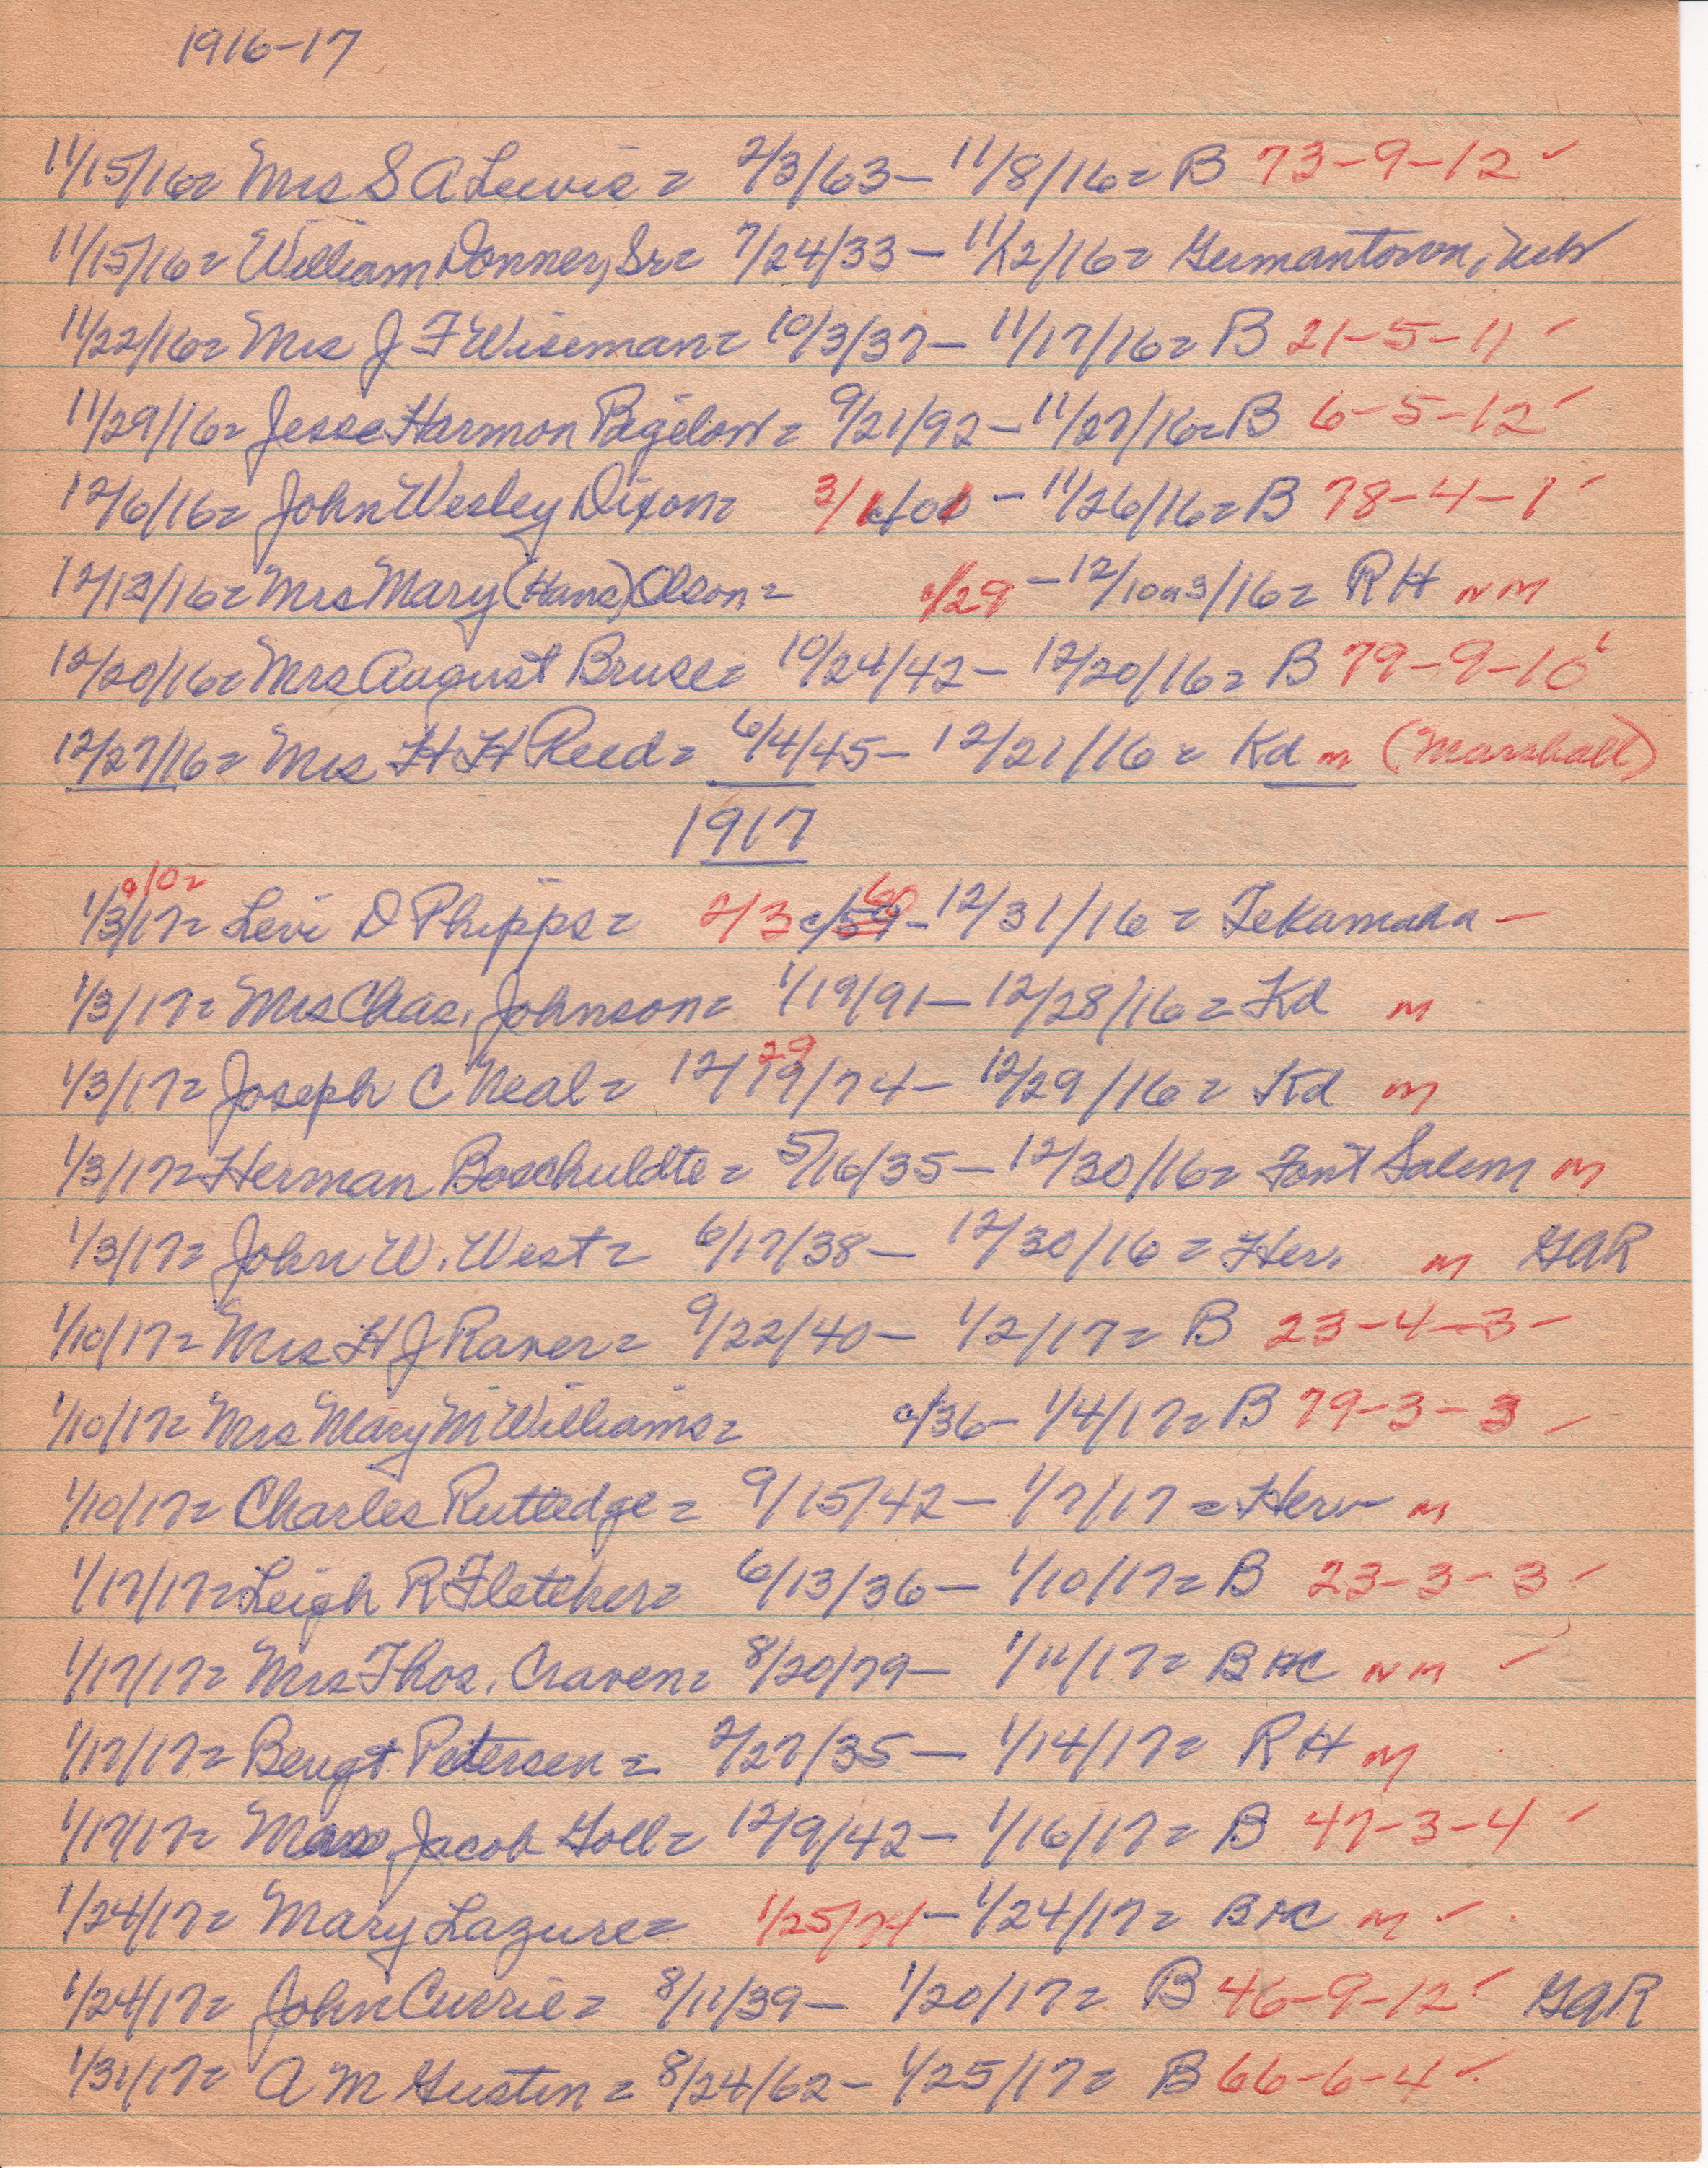 1916-17
11/15/16= Mrs S A Lewis = 2/3/63- 11/8/16= B 73-9-12 ✓
11/15/16= William Donner, Sr= 7/24/33- 11/12/16= Germantown, Neb
11/22/16= Mrs J F Wiseman= 10/3/37- 11/17/16= B 21-5-11 ✓
11/29/16= Jesse Harmon Bigelow= 9/21/92-11/27/16=B 6-5-12 ✓
12/6/16= John Wesley Dixon= - 11/26/16=B 78-4-1 ✓
12/13/16= Mrs Mary (Hans) Olson= c/29 -12/10a3/16= RH NM
12/20/16= Mrs August Bruse= 10/24/42- 12/20/16= B 79-9-10 ✓
12/27/16= Mrs H H Reed= 6/4/45- 12/21/16= Kd m (Marshall)
1917
1/3/17= Levi D Phipps= 2/3 c/59 60 -12/31/16= Tekamaha -
1/3/17= Mrs Chas. Johnson= 1/19/91- 12/28/16= Kd m
1/3/17= Joseph C Neal= 12/19/74- 29 12/29/16= Kd m
1/3/17= Herman Boschuldte= 5/16/35- 12/30/16= Font Salem m
1/3/17= John W. West= 6/17/38- 12/30/16= Her. m GAR
1/10/17= Mrs H J Raver= 9/22/40- 1/2/17= B 23-4-3 -
1/10/17= Mrs Mary M Williams= c/36- 1/4/17= B 79-3-3 -
1/10/17= Charles Rutledge= 9/15/42- 1/7/17= Her m
1/17/17= Leigh R Fletcher= 6/13/36- 1/10/17= B 23-3-3 ✓
1/17/17= Mrs Thos. Craven= 8/20/79- 1/11/17= B NC NM ✓
1/17/17= Bengt Petersen= 2/27/35- 1/14/17= RH m
1/17/17= Jacob Goll= 12/9/42- 1/16/17= B 47-3-4 ✓
1/24/17= Mary Lazure= 1/25/74- 1/24/17= B NC m ✓
1/24/17= John Currie= 8/11/39- 1/20/17= B 46-9-12 ✓ GAR
1/31/17= A M Gustin= 8/24/62- 1/25/17= B 66-6-4 ✓